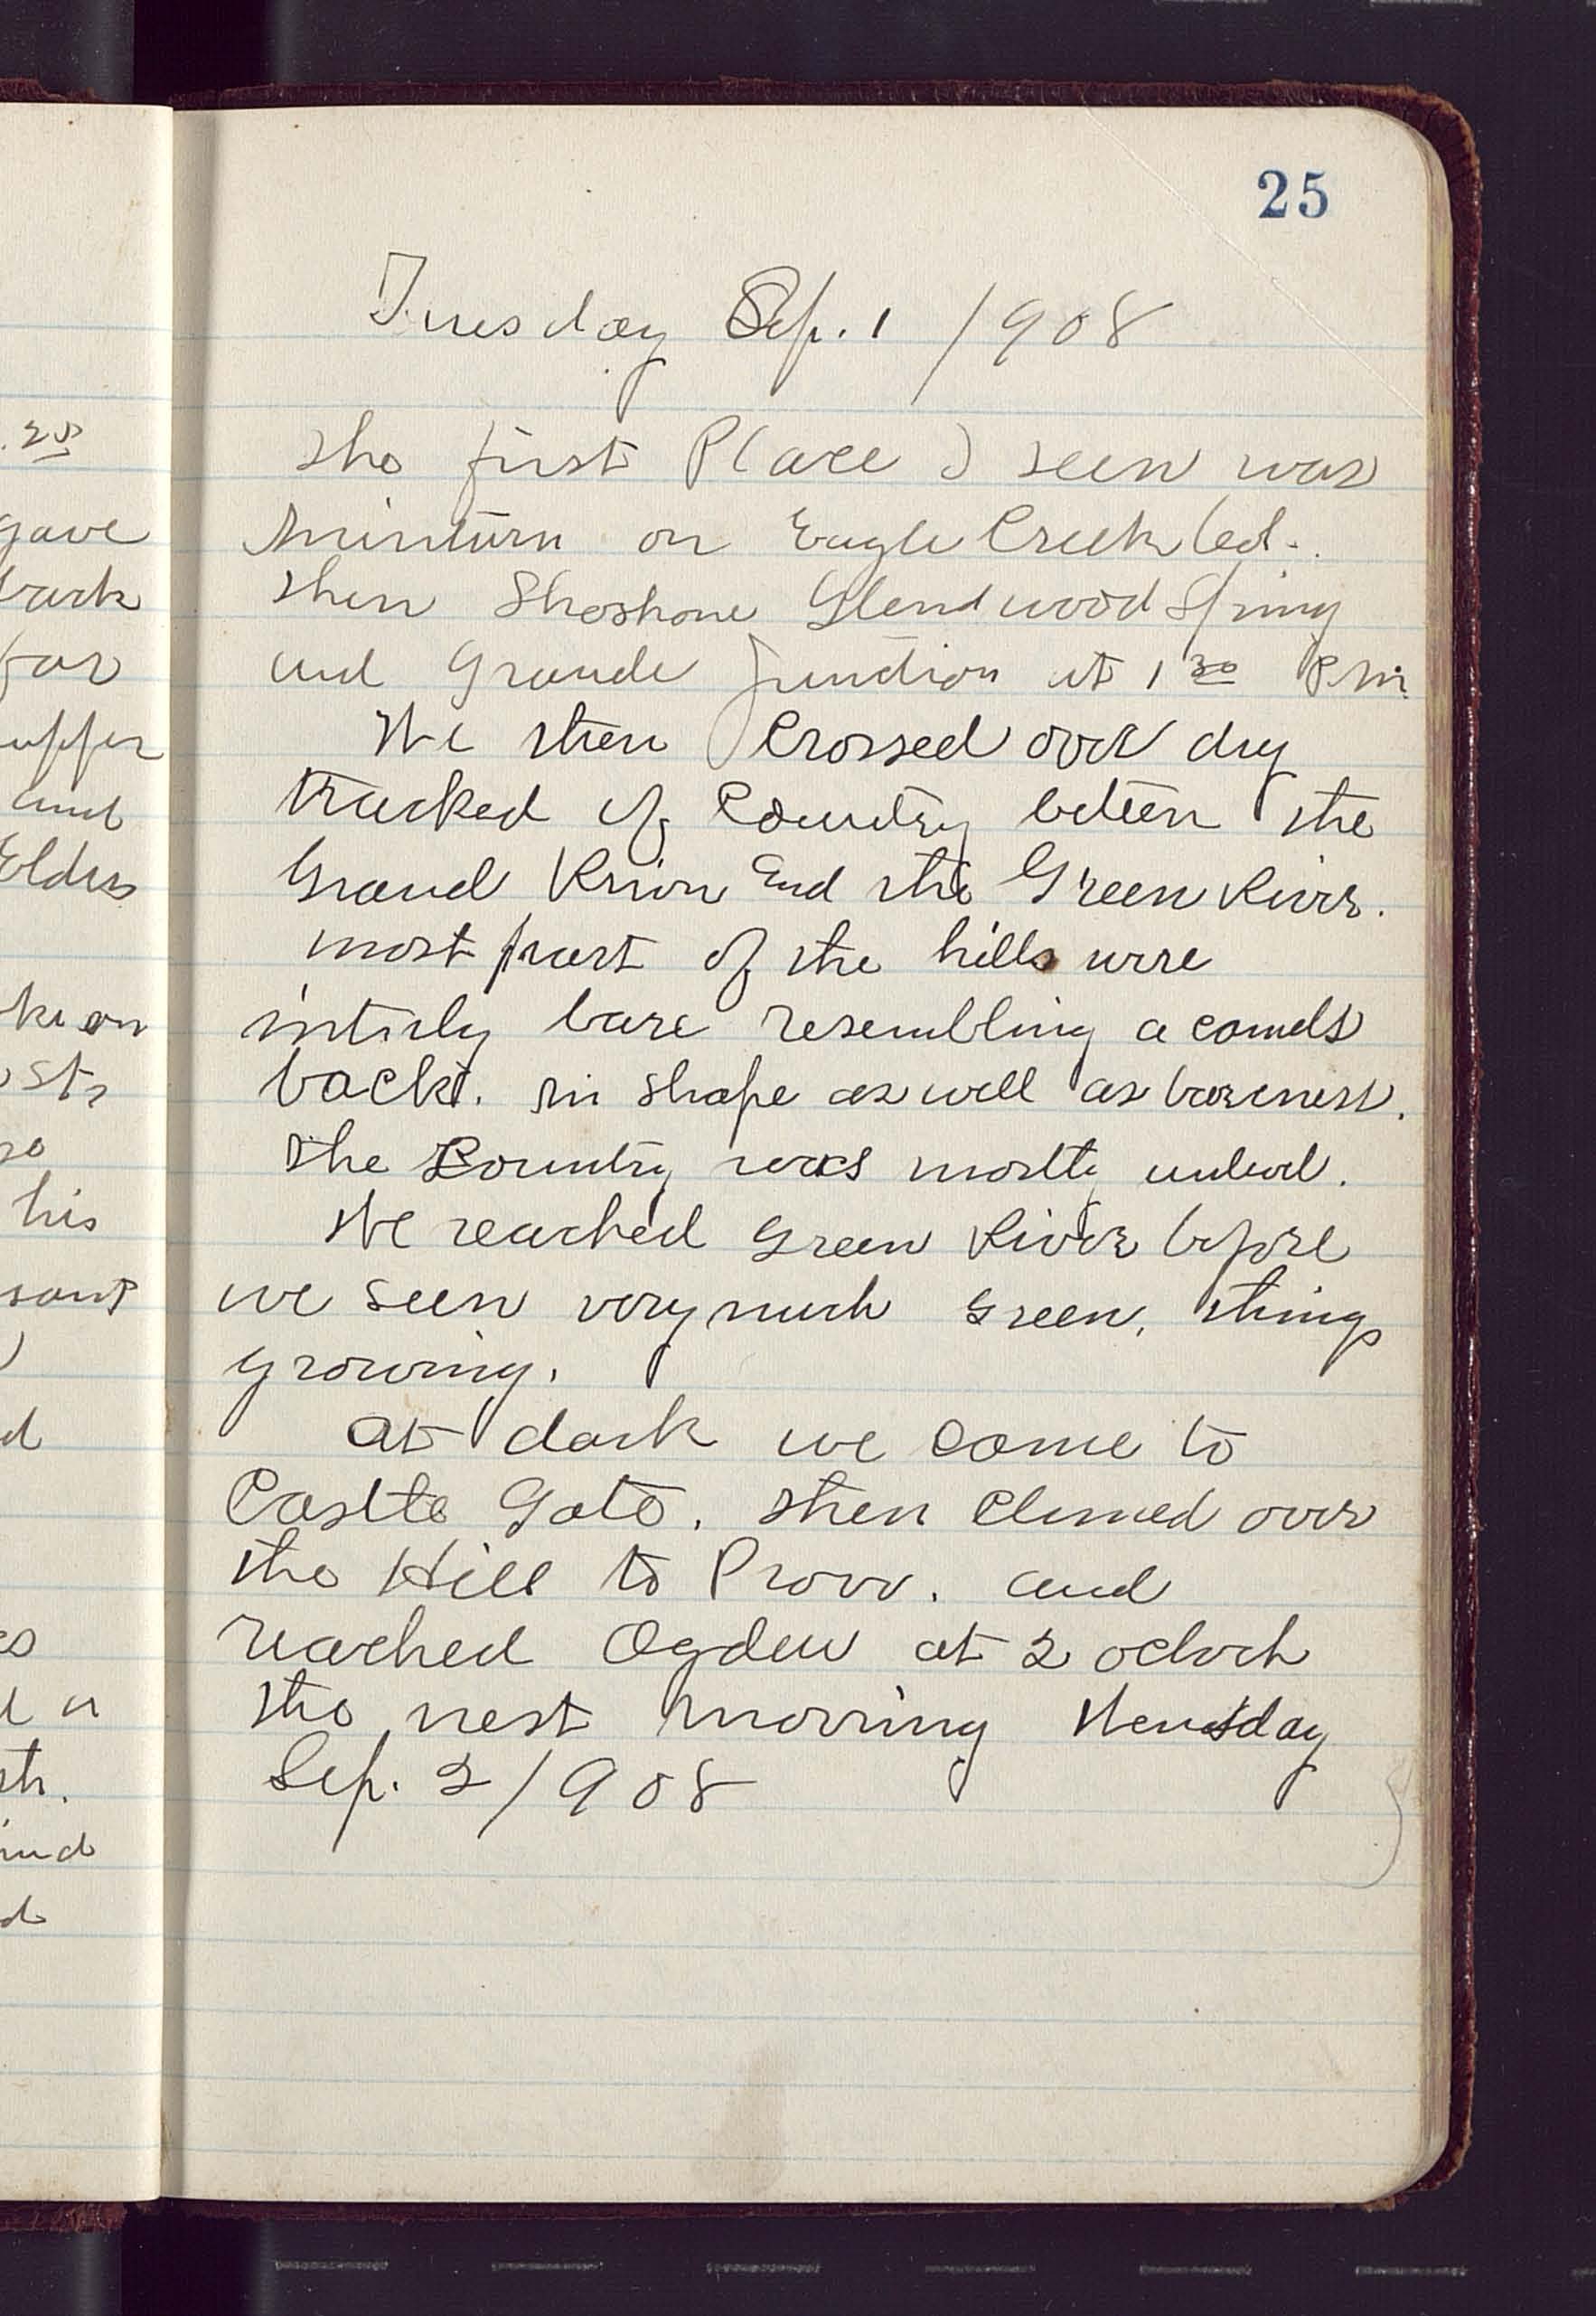 25
Tuesday Sep. 1 1908
the first Place I seen was
Minturn on Eagle Creek Col.
then Shoshone Glendwood Spring
and Grande Junction at 1 30 P.M.
We then Crossed over dry
tracked of Country beteen the
Grand River End the Green River.
most part of the hills were
intirly bare resembling a camels
back. in shape as well as bareness.
the Country was mostly unlevel.
We reached Green River before
we seen very much Green, things
growing.
at dark we come to
Castle Gate. then Climed over
the Hill to Provo. and
reached Ogden at 2 oclock
the nest morning Wensday
Sep. 2 / 908
gave
for
supper
and
Elders
his